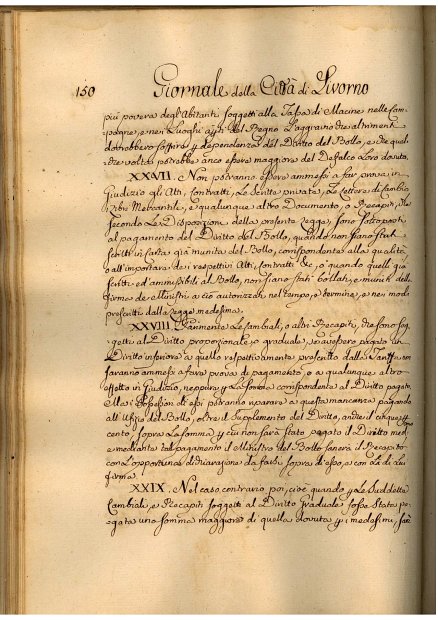 150 Giornale della Città di Livorno
più povera degl'Abitanti soggetti alla Tassa di Macine nelle Cam-
-pagne, e nei Luoghi del Regno L'aggravio che altrimenti
dovrebbero soffrire dependenza del Diritto del Bollo, e che quel-
che volta potrebbe anco essere maggiore del Defalco Loro dovuto.
XXVII. Non potranno essere ammessi a far prova in
Giudizio gli Atti, Contratti, Le Scritte private, Le Lettere di Cambio
Libri Mercantili, e qualunque altro Documento, o Recapiti, che
secondo Le Disposizioni della presente Legge, sono sottoposti
al pagamento del Diritto del Bollo, quando non siano stati
scritti in Carta già munita del Bollo, corrispondente alla qualità
o all'importare dei respettivi Atti, Contratti &c, o quando quelli già
scritti ed ammissibili al Bollo, non siano stati bollati, e muniti della
firma de Ministri a ciò autorizzati nel tempo, e termine, e nei modi
prescritti dalla Legge medesima.
XXVIII. Parimente Le Cambiali, o altri Recapiti, che sono sog-
-getti al Diritto proporzionale, o graduale, se avessero pagato un
Diritto inferiore a quello respettivamente prescritto dalla Tariffa non
saranno ammessi a fare prova di pagamento, e a qualunque altro
effetto in Giudizio, neppure la somma corrispondente al Diritto pagato,
Ma i Possessori di essi potranno riparare a questa mancanza pagando
all'Ufizio del Bollo, oltre il Supplemento del Diritto, anche il cinque
cento, sopra La somma cui non sarà stato pagato il Diritto med.
e mediante tal pagamento il Ministro del Bollo sanerà il Recapito
con L'opportuna dichiarazione da farsi sopra di esso, e con La di Lui
firma.
XXIX. Nel caso contrario poi, cioè quando Le Suddette
Cambiali, e Recapiti soggetti al Diritto graduale fosse Stata pa-
-gata una somma maggiore di quella dovuta i medesimi, sarà